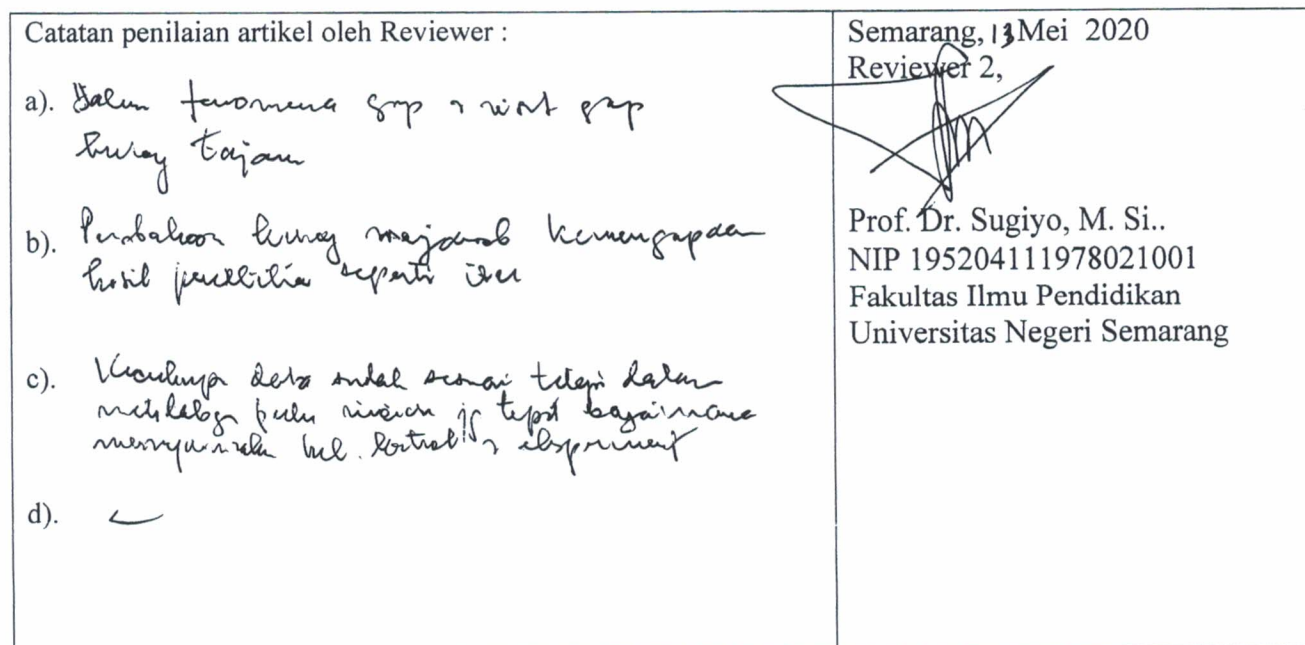 Catatan penilaian artikel oleh Reviewer :
a). Dalam fenomena gap riset gap
kurang tajam
b). Pembahasan kurang menjawab kemengapaan
hasil penelitian seperti itu
c). data sudah sesuai tetapi dalam
perlu tepat bagaimana
kel. kontrol eksperiment
d).
Semarang, 13 Mei 2020
Reviewer 2,
Prof. Dr. Sugiyo, M. Si..
NIP 195204111978021001
Fakultas Ilmu Pendidikan
Universitas Negeri Semarang